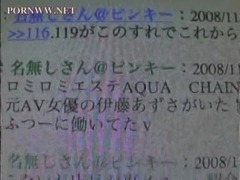 PORNWW.NET
名無しさん@ピンキー：2008/11
>>116.119がこのすれでこれから
名無しさん@ピンキー：2008/11
ロミロミエステAQUA CHAIN
元AV女優の伊藤あずさがいた！
ふつーに働いてたｖ
名無しさん@ピンキー：2008/1